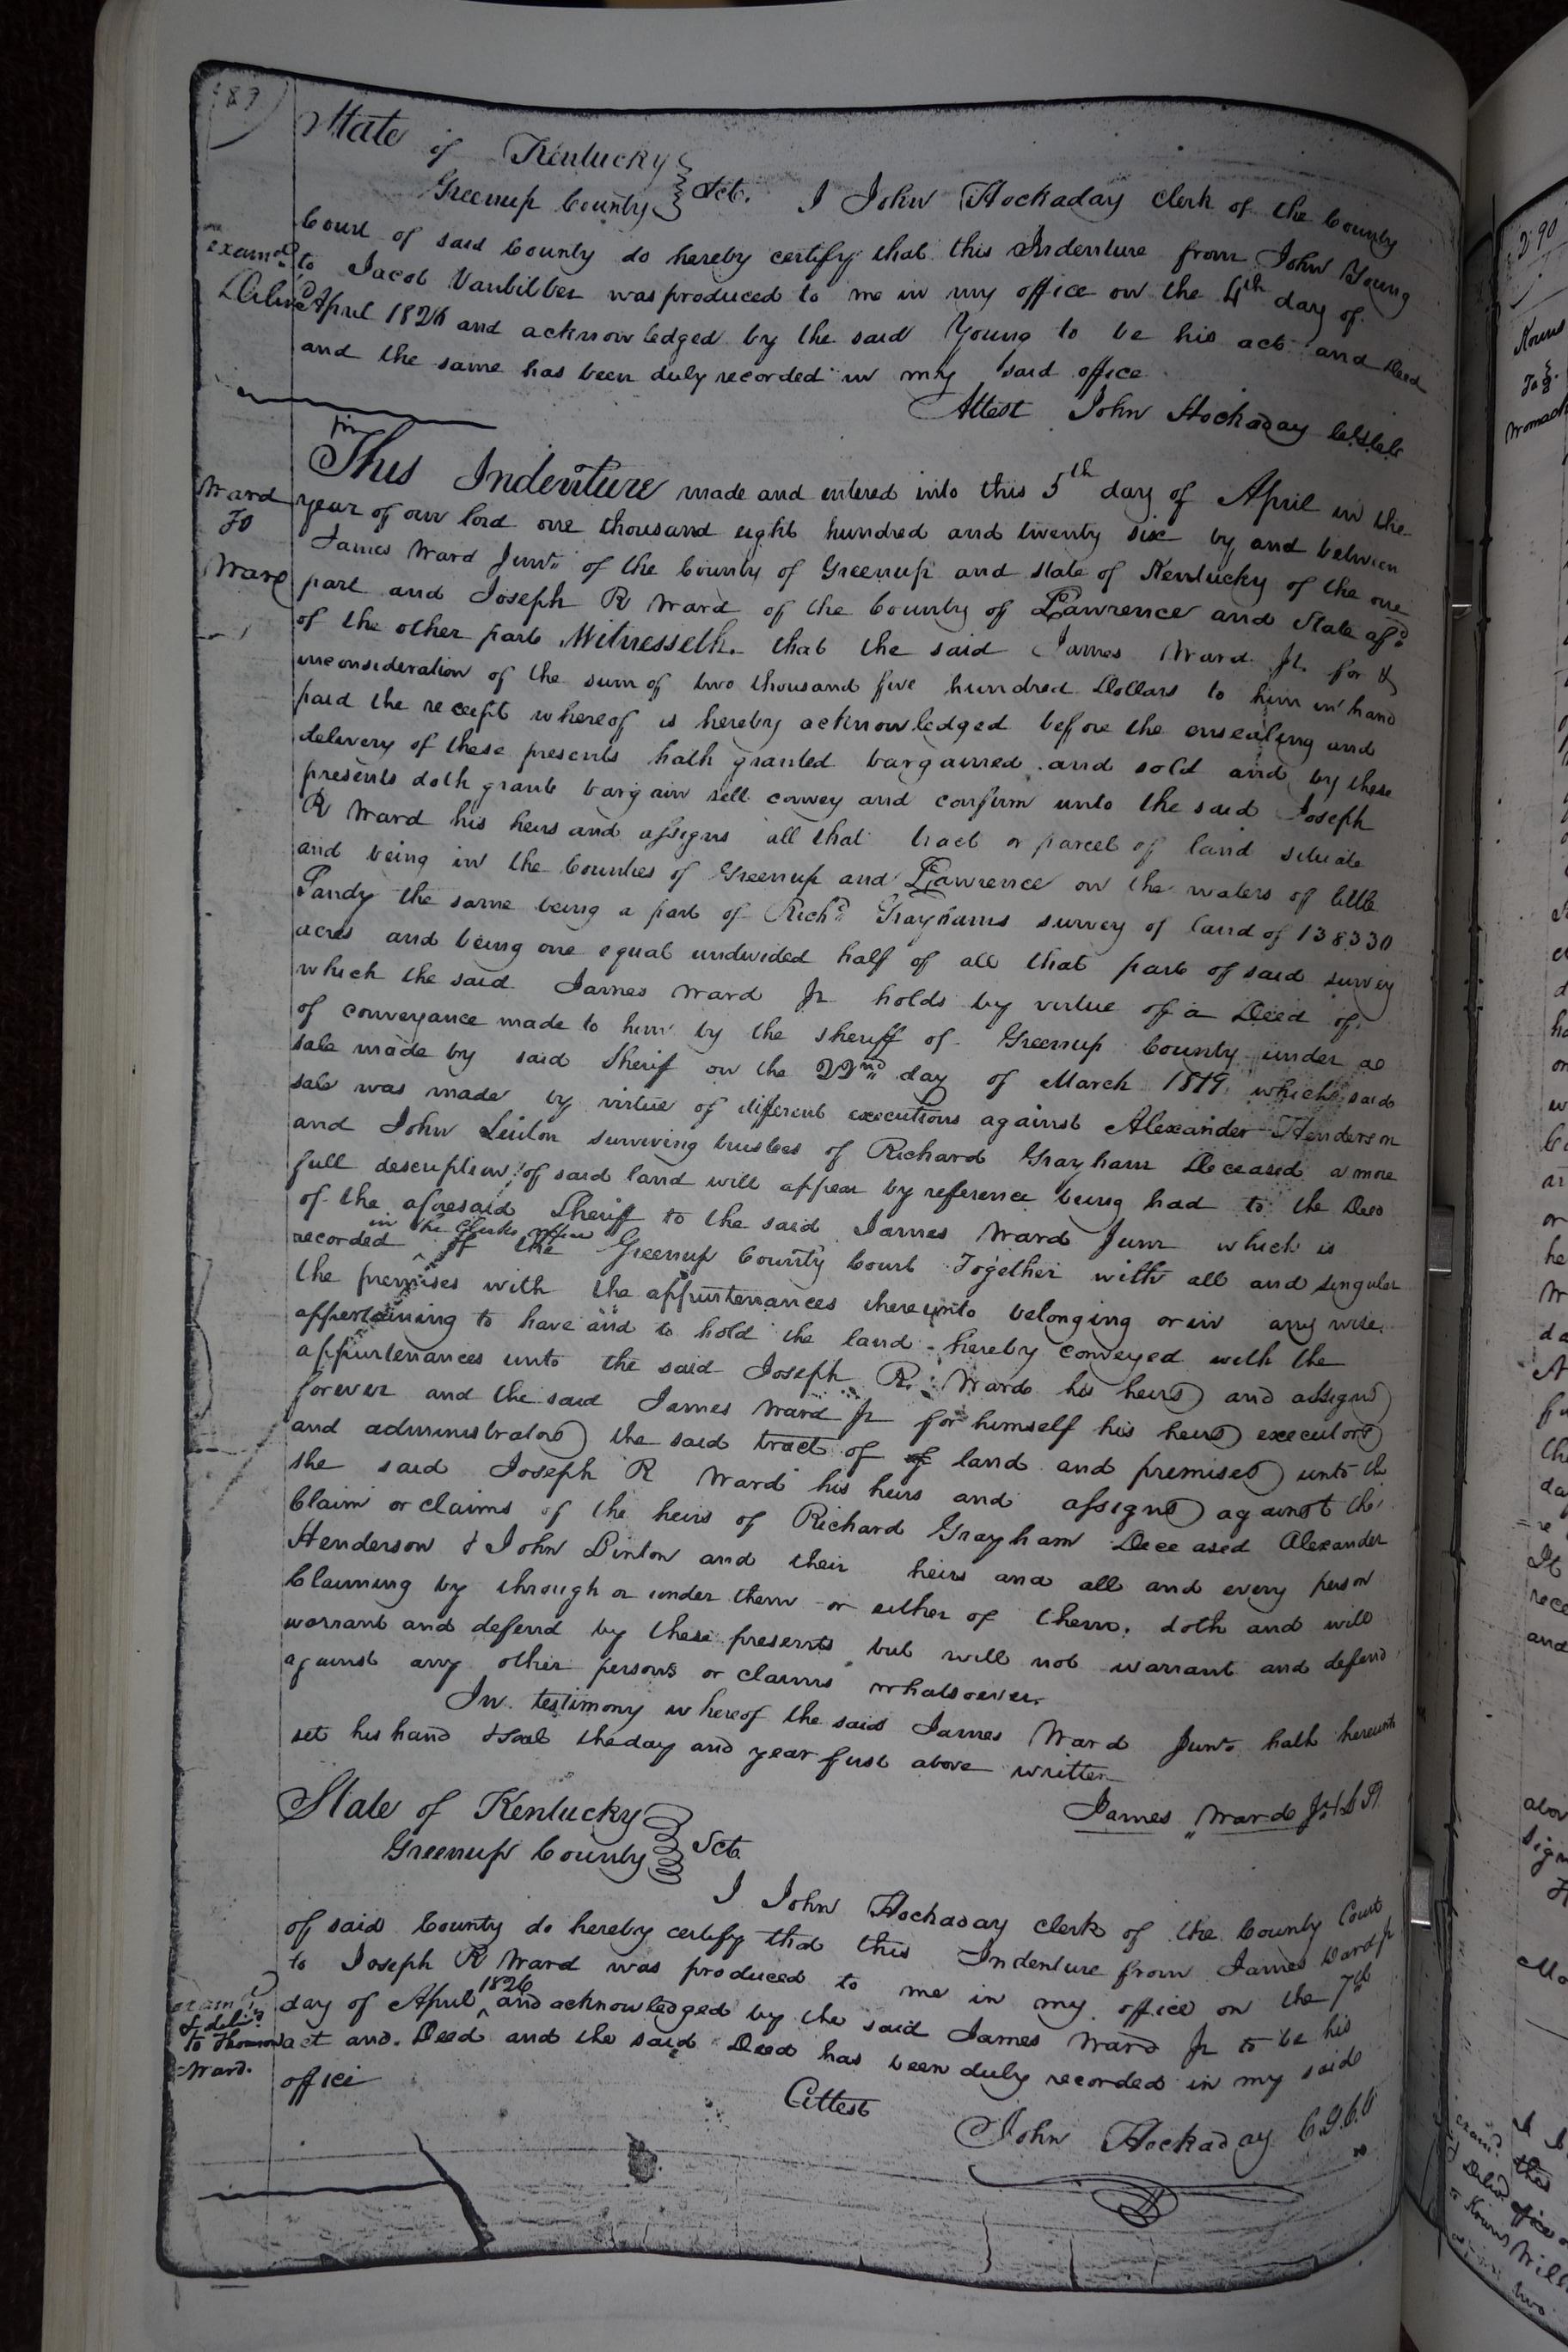 89
State of Kentucky
Greenup County Sct. I John Hockaday Clerk of the County
Court of said County do hereby certify that this Indenture from John Young
examd. to Jacob Vanbibber was produced to me in my office on the 4th day of
Delivd April 1826 and acknowledged by the said Young to be his act and Deed
and the same has been duly recorded in my said office
Attest John Hockaday
This Indenture made and entered into this 5th day of April in the
Ward
To
Ward
year of our lord one thousand eight hundred and twenty six by and between
James Ward Junr. of the County of Greenup and state of Kentucky of the one
part and Joseph R Ward of the County of Lawrence and State afd
of the other part Witnesseth. that the said James Ward Jr. for &
inconsideration of the sum of two thousand five hundred Dollars to him in hand
paid the receipt whereof is hereby acknowledged before the ensealing and
delivery of these presents hath granted bargained and sold and by these
presents doth grant bargain sell convey and confirm unto the said Joseph
R Ward his heirs and assigns all that tract or parcel of land situate
and being in the Counties of Greenup and Lawrence on the waters of little
Sandy the same being a part of Richd. Grayhams survey of land of 138330
acres and being one equal undivided half of all that part of said survey
which the said James Ward Jr holds by virtue of a Deed of
of conveyance made to him by the sheriff of Greenup County under a
sale made by said Sherif on the 22nd day of March 1819 which said
sale was made by virtue of different executions against Alexander Henderson
and John Linton surviving trustees of Richard Grayham Deceased a more
full description of said land will appear by reference being had to the Deed
of the aforesaid Sheriff to the said James Ward Junr which is
in the Clerks office
recorded ^ of the Greenup County Court Together with all and singular
the premises with the appurtenances thereunto belonging or in any wise
appertaining to have and to hold the land hereby conveyed with the
appurtenances unto the said Joseph R. Ward his heirs and assigns
forever and the said James Ward Jr for himself his heirs executors
and administrators the said tract of of land and premises unto the
she said Joseph R Ward his heirs and assigns against the
Claim or claims of the heirs of Richard Grayham Deceased Alexander
Henderson & John Linton and their heirs and all and every person
Claiming by through or under them or either of them. doth and will
warrant and defend by these presents but will not warrant and defend
against any other persons or claims whatsoever.
In testimony whereof the said James Ward Junr. hath hereunto
set his hand & seal the day and year first above written
James Ward Jr
State of Kentucky
Greenup County Sct.
I John Hockaday clerk of the County Court
of said County do hereby certify that this Indenture from James Ward Jr
to Joseph R Ward was produced to me in my office on the 7th
1826
day of April ^ and acknowledged by the said James Ward Jr to be his
act and Deed and the said Deed has been duly recorded in my said
office
examd.
& deld.
to Thomson
Ward.
Attest
John Hockaday C.G.C.C